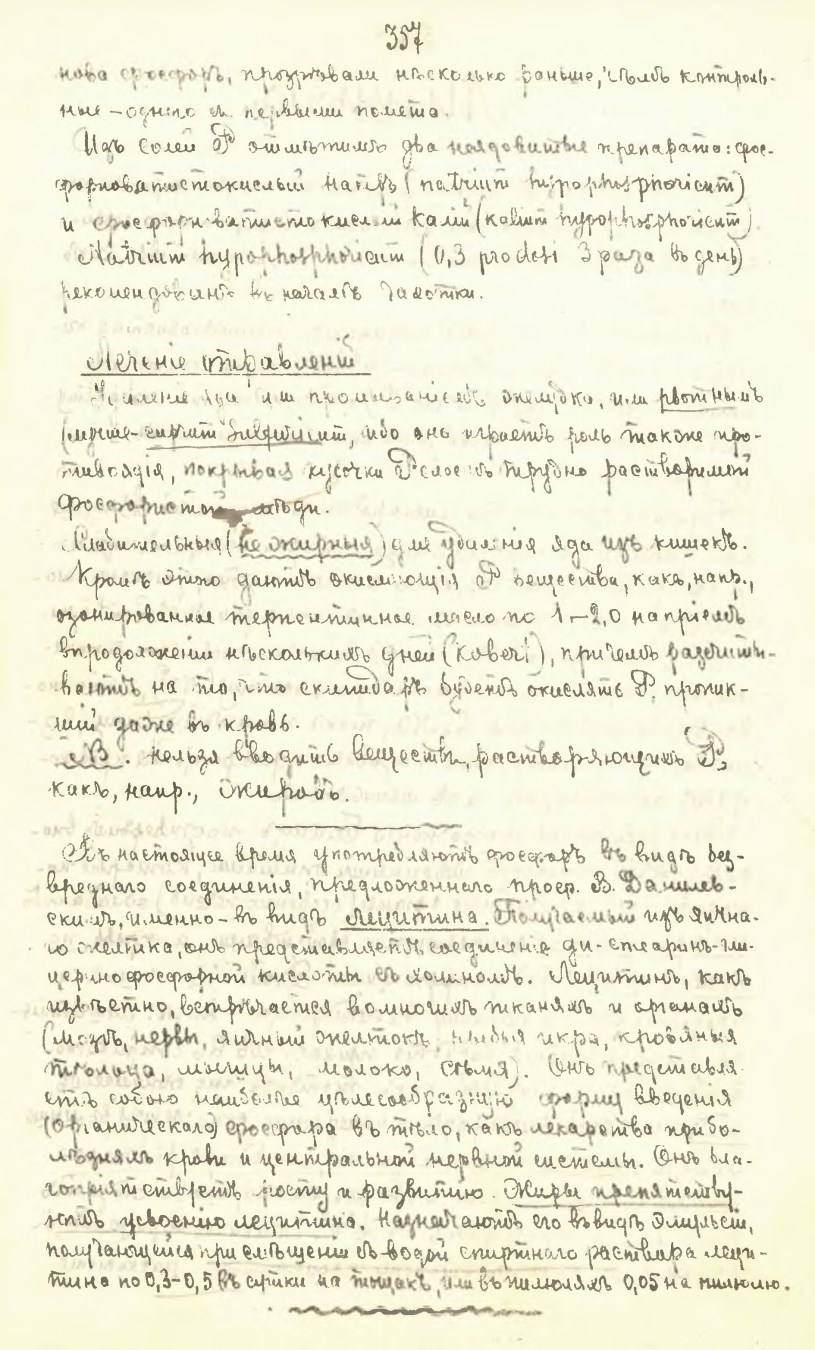 357
нова фосфоръ, прозрѣвали нѣсколько раньше, чѣмъ контроль-
ные – одного съ первыми помета.
Изъ солей P отмѣтимъ два неядовитые препарата: фос-
форноватистокислый натръ (natrium hypophosphoricum)
и фосфорноватистокислый калій (kalium hypophosphoricum)
Natrium hypophosphoricum (0,3 pro dosi 3 раза въ день)
рекомендованъ въ началѣ чахотки.
Леченіе отравленій
Удаленіе яда или промываніемъ желудка, или рвотнымъ
(лучше – cuprum sulfuricum, ибо онъ играетъ роль также про-
тивоядія, покрывая кусочки P слоемъ трудно растворимой
фосфористой мѣди.
Слабительныя (не жирныя) для удаленія яда изъ кишекъ.
Кромѣ этого даютъ окисляющія P вещества, какъ, напр.,
озонированное терпентинное масло по 1–2,0 на пріемъ
впродолженіи нѣсколькихъ дней (Kobert), причемъ разсчиты-
ваютъ на то, что скипидаръ будетъ окислять P, проник-
шій даже въ кровь.
NB. нельзя вводить веществъ, растворяющихъ P,
какъ, напр., жировъ.
Въ настоящее время употребляютъ фосфоръ въ видѣ без-
вреднаго соединенія, предложеннаго проф. В. Данилев-
скимъ, именно – въ видѣ лецитина. Получаемый изъ яична-
го желтка, онъ представляетъ соединеніе ди-стеаринъ-гли-
церинофосфорной кислоты съ холиномъ. Лецитинъ, какъ
извѣстно, встрѣчается во многихъ тканяхъ и органахъ
(мозгъ, нервы, яичный желтокъ, рыбья икра, кровяныя
тѣльца, мышцы, молоко, сѣмя). Онъ представля-
етъ собою наиболѣе цѣлесообразную форму введенія
(органическаго) фосфора въ тѣло, какъ лекарства при бо-
лѣзняхъ крови и центральной нервной системы. Онъ бла-
гопріятствуетъ росту и развитію. Жиры препятству-
ютъ усвоенію лецитина. Назначаютъ его въ видѣ эмульсіи,
получающейся при смѣшеніи съ водой спиртнаго раствора леци-
тина по 0,3–0,5 въ сутки на тощакъ, или въ пилюляхъ 0,05 на пилюлю.